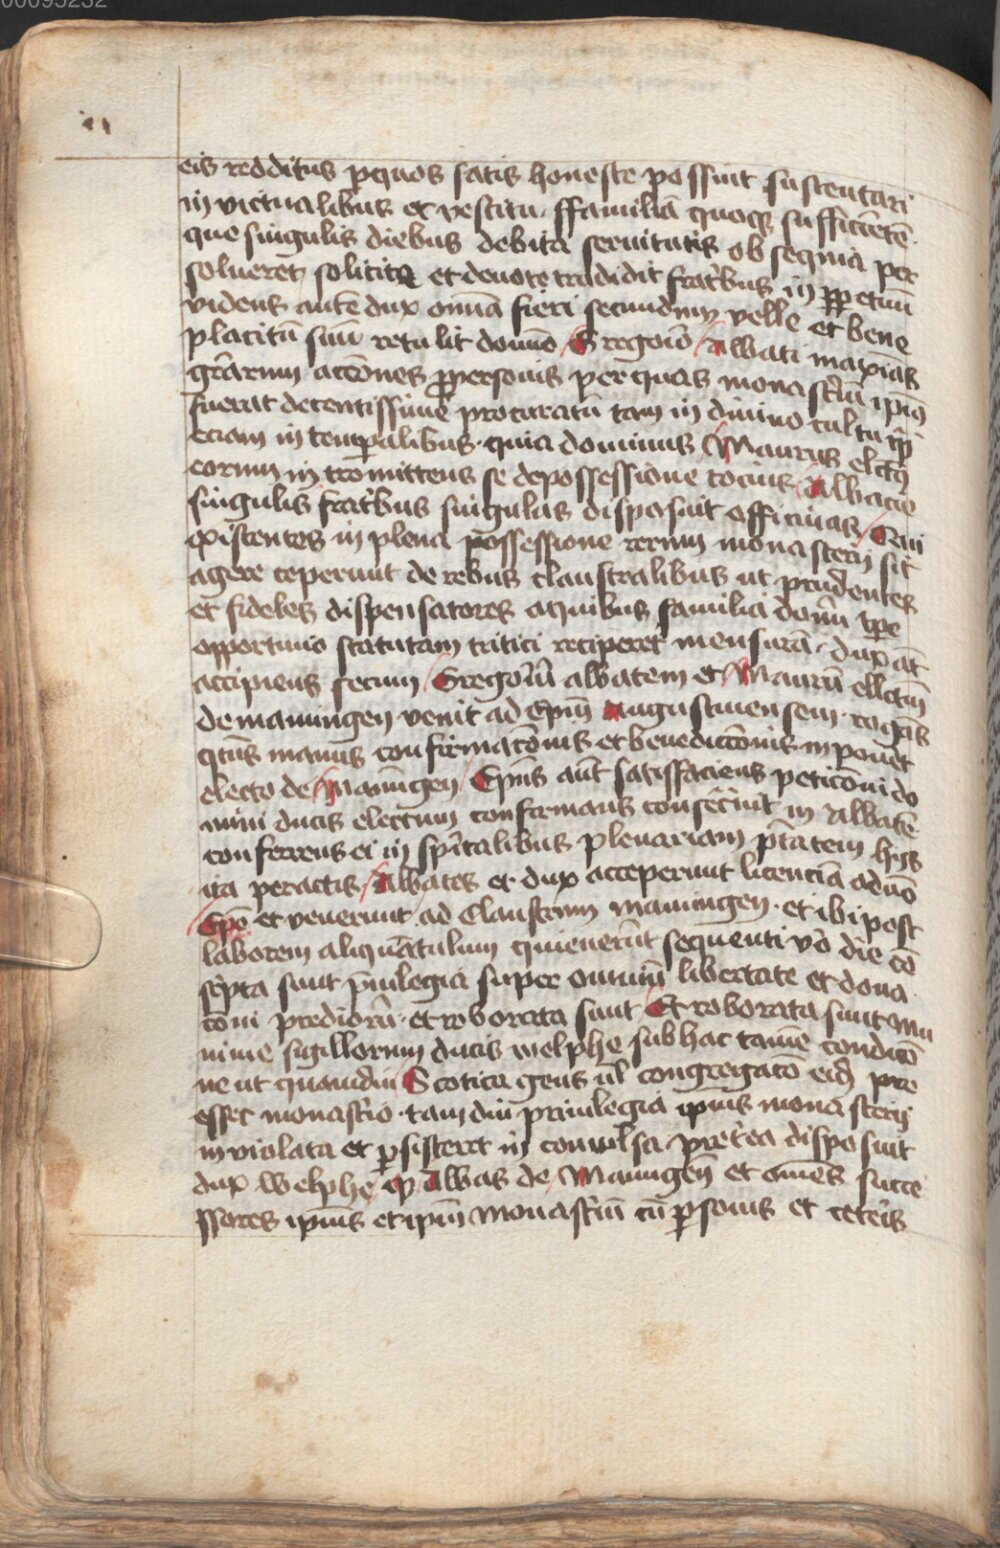 00095252
eis redditus pquos satis honeste possint sustentari
in victualibus et vestitu. ffamiliā quoqȝ sufficiētē.
que singulis diebus debita seruitutis obsequia per
solueret solicite et deuote tradidit fratribus in ꝑpetuū
videns autē dux omnia fieri secundum velle et bene
placitū suū retulit domno Gregorio abbati maxias
grārum accōnes ꝓpersonis per quas monastriū ipm̄
fuerat decentissime procuratū tam in diuino cultu qȝ
eciam in temꝑalibus. quia dominus Maurus elctus
eorum in tromittens se depossessione tocius Abbacie
singulis fratribus singulas disposuit officinas Qui
existentes in plena possessione rerum monasterij sic
agere ceperunt de rebus claustralibus ut prudentes
et fideles dispensatores aquibus familia domī tꝑe
opportuno statutam tritici reciperet mensurā. dux āt
accipiens secum Gregoriū abbatem et Maurū ellectū
demamingen venit ad Epm̄ augustinensem. rogās
quis manus confirmacōnis et benedictōnis inponeret
electo de Mamingen Epus aūt satisffaciens peticōni do
mini ducis electum confirmans consecrauit in abbatē
conferens ei in spiritalibus plenariam ptātem hijs
ita peractis Abbates et dux acceperunt licenciā aduō
Epo et venerunt ad Claustrum mamingen. et ibi post
laborem aliquātulum quieuerūt sequenti vo die cō
scripta sunt priuilegia super omnium libertate et dona
cōni predioriū. et roborata sunt Et roborata sunt mu
nime sigillorum ducis welphe sub hac tamē condicō
ne ut quamdiu Scotica gens ul congregatō eidē pre
esset monastrio. tam diu priuilegia ipius monasterij
inviolata et ꝑsisteret in conuulsa. preterea disposuit
dux welphe qȝ abbas de Mamingen et omēs succe
ssores ipius et ipm̄ monastriū cū ꝑsonis et ceteris